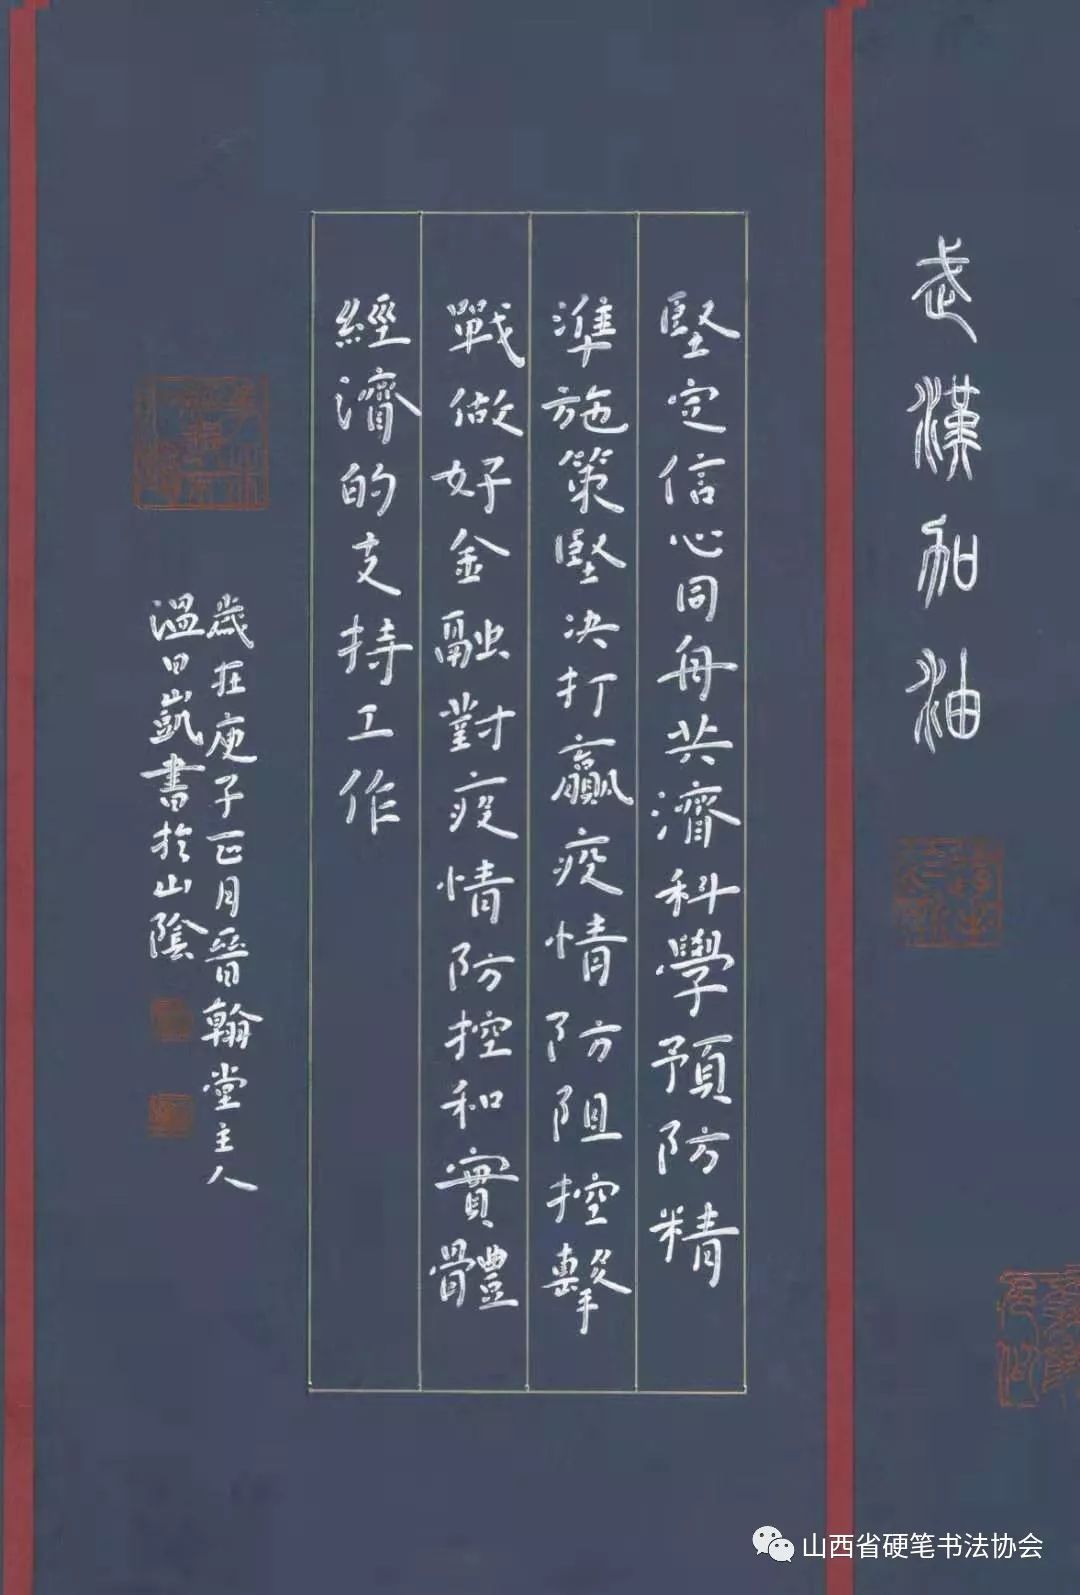 武漢加油
堅定信心同舟共濟科學預防精
準施策堅决打贏疫情防阻控擊
戰做好金融對疫情防控和實體
經濟的支持工作
歲在庚子正月晉翰堂主人
溫日凱書於山陰
山西省硬笔书法协会